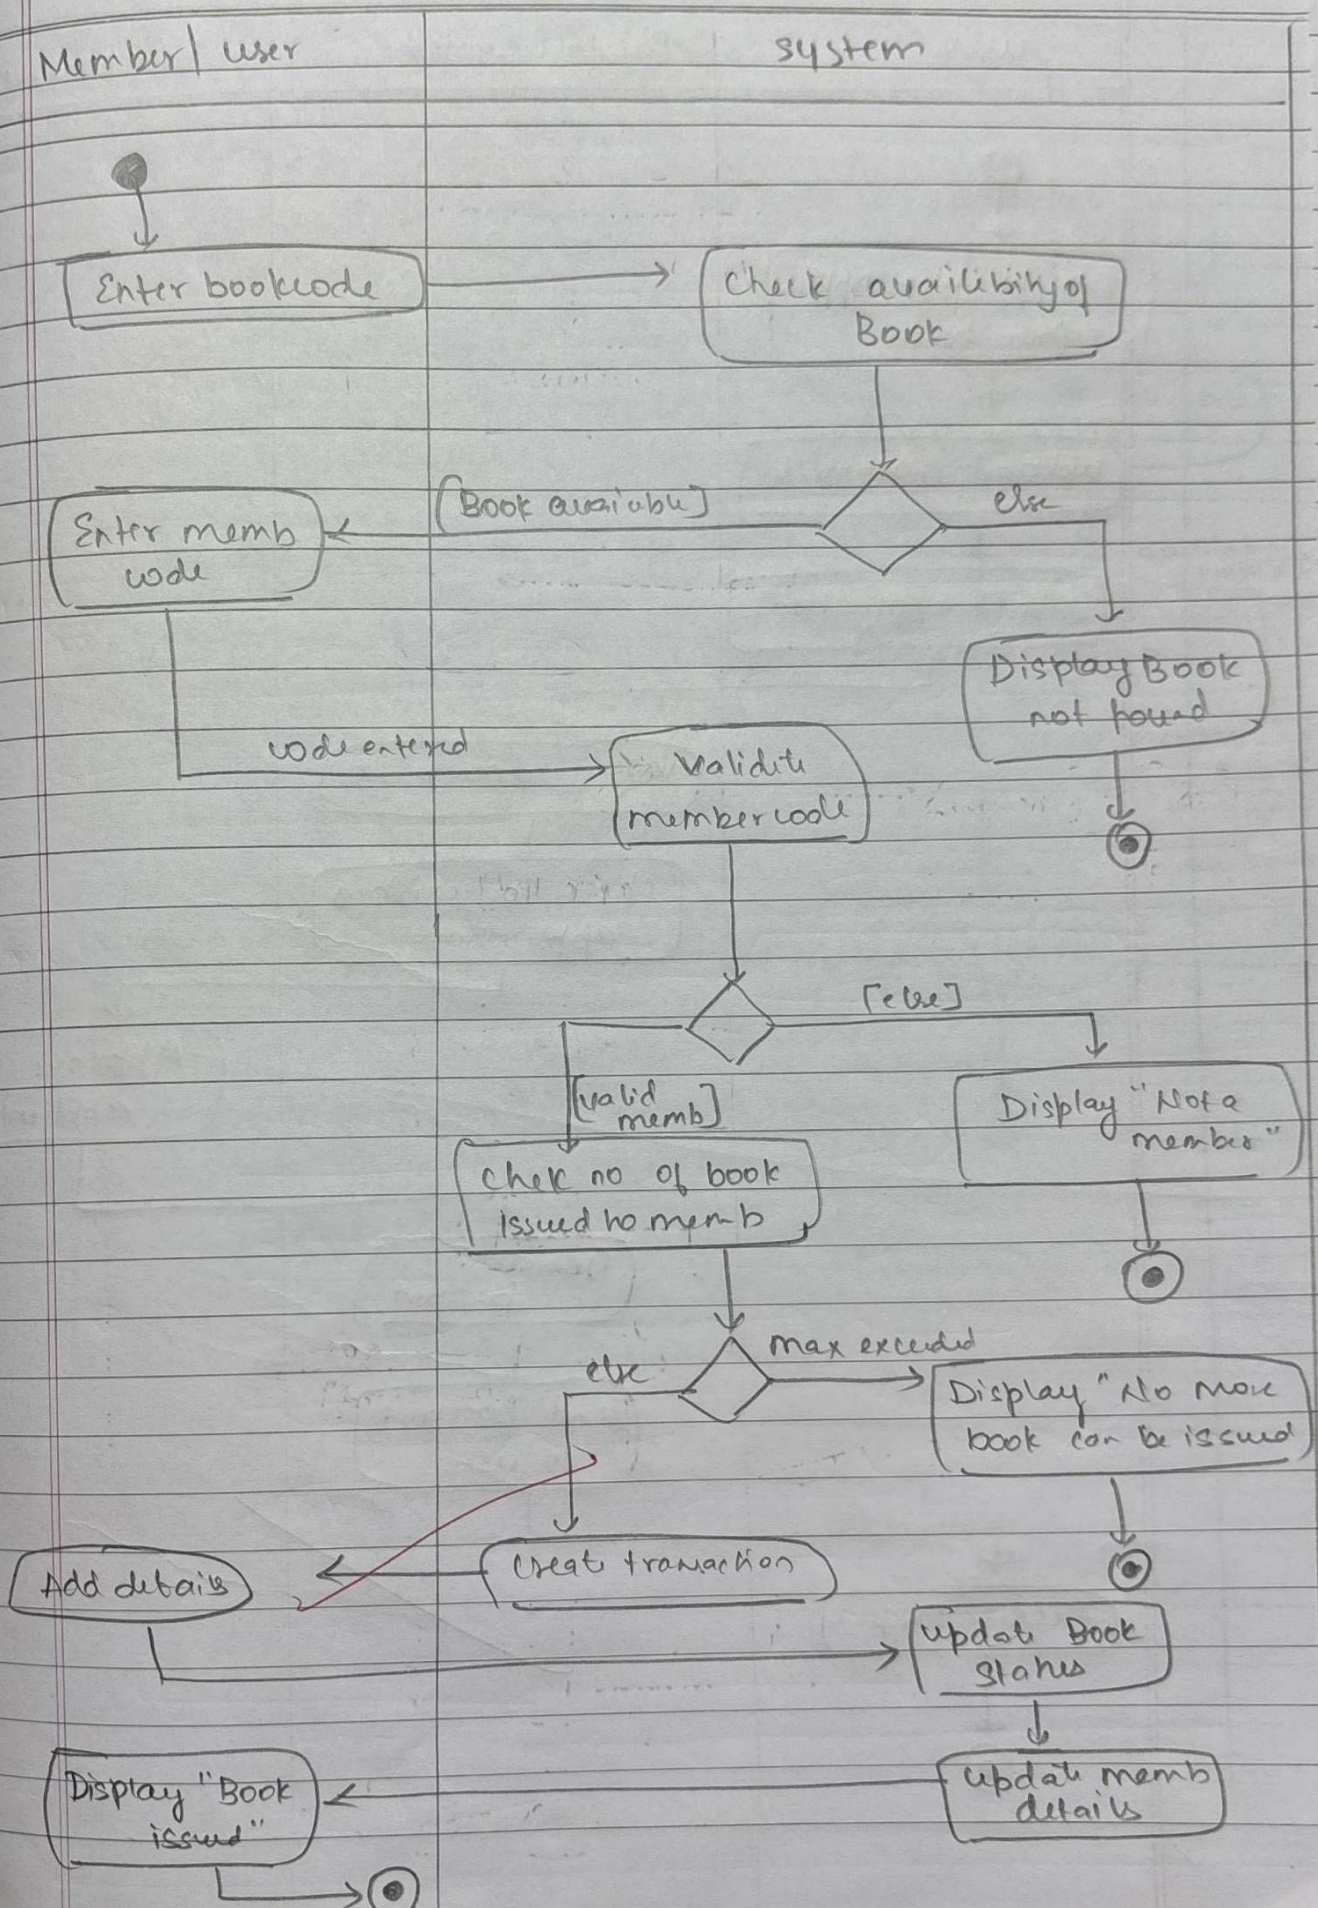 Member/ user
system
Enter bookcode
Check availibity of
Book
[Book avaiable]
else
Enter memb
code
Display Book
not found
code entered
Validate
member code
[else]
[valid
memb]
Display "Not a
member"
Chek no of book
issued to memb
max exceeded
else
Display "No more
book can be issued
Creat transaction
Add details
update Book
status
Display "Book
issued"
update memb
details